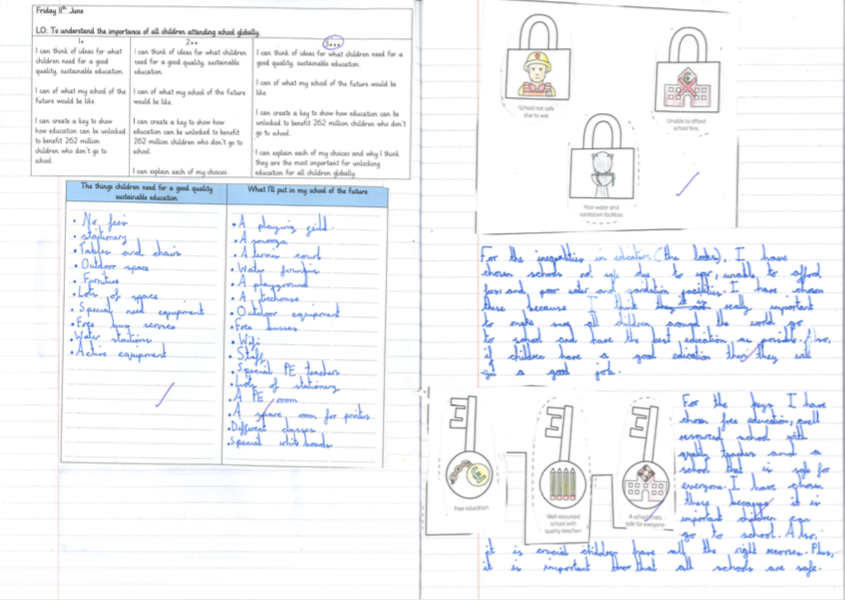 Friday 11th June
LO: To understand the importance of all children attending school globally.
1*
I can think of ideas for what
children need for a good
quality, sustainable education.
I can of what my school of the
future would be like.
I can create a key to show
how education can be unlocked
to benefit 262 million
children who don't go to
school.
2**
I can think of ideas for what children
need for a good quality, sustainable
education.
I can of what my school of the future
would be like.
I can create a key to show how
education can be unlocked to benefit
262 million children who don't go to
school.
I can explain each of my choices.
3***
I can think of ideas for what children need for a
good quality, sustainable education.
I can of what my school of the future would be
like.
I can create a key to show how education can be
unlocked to benefit 262 million children who don't
go to school.
I can explain each of my choices and why I think
they are the most important for unlocking
education for all children globally.
The things children need for a good quality
sustainable education
• No fees
• stationery
• Tables and chairs
• Outdoor space
• Furniture
• Lots of space
• Special need equipment
• Free bus service
• Water stations
• Active equipment
What I'll put in my school of the future
• A playing field
• A
• A tennis court
• Water fountains
• A playground
• A treehouse
• Outdoor equipment
• Free busses
• Wifi
• Staff
• Special PE teachers
• Lots of stationery
• A PE room
• A spare room for printers
• Different classes
• Special white boards
School not safe
due to war
Unable to afford
school fees
Poor water and
sanitation facilities
For the inequalities in education (the locks), I have
chosen schools not safe due to war, unable to afford
fees and poor water and sanitation facilities. I have chosen
these because I think really important
to make all children around the world go
to school and have the best education as possible. Also,
if children have a good education then they will
get a good job.
Free education
Well resourced
school with
quality teachers
A school that's
safe for everyone
For the keys I have
chosen free education, well
resourced school with
quality teachers and a
school that is safe for
everyone. I have chosen
these because it is
important children can
go to school. Also,
it is crucial children have all the right resources. Plus,
it is important that all schools are safe.